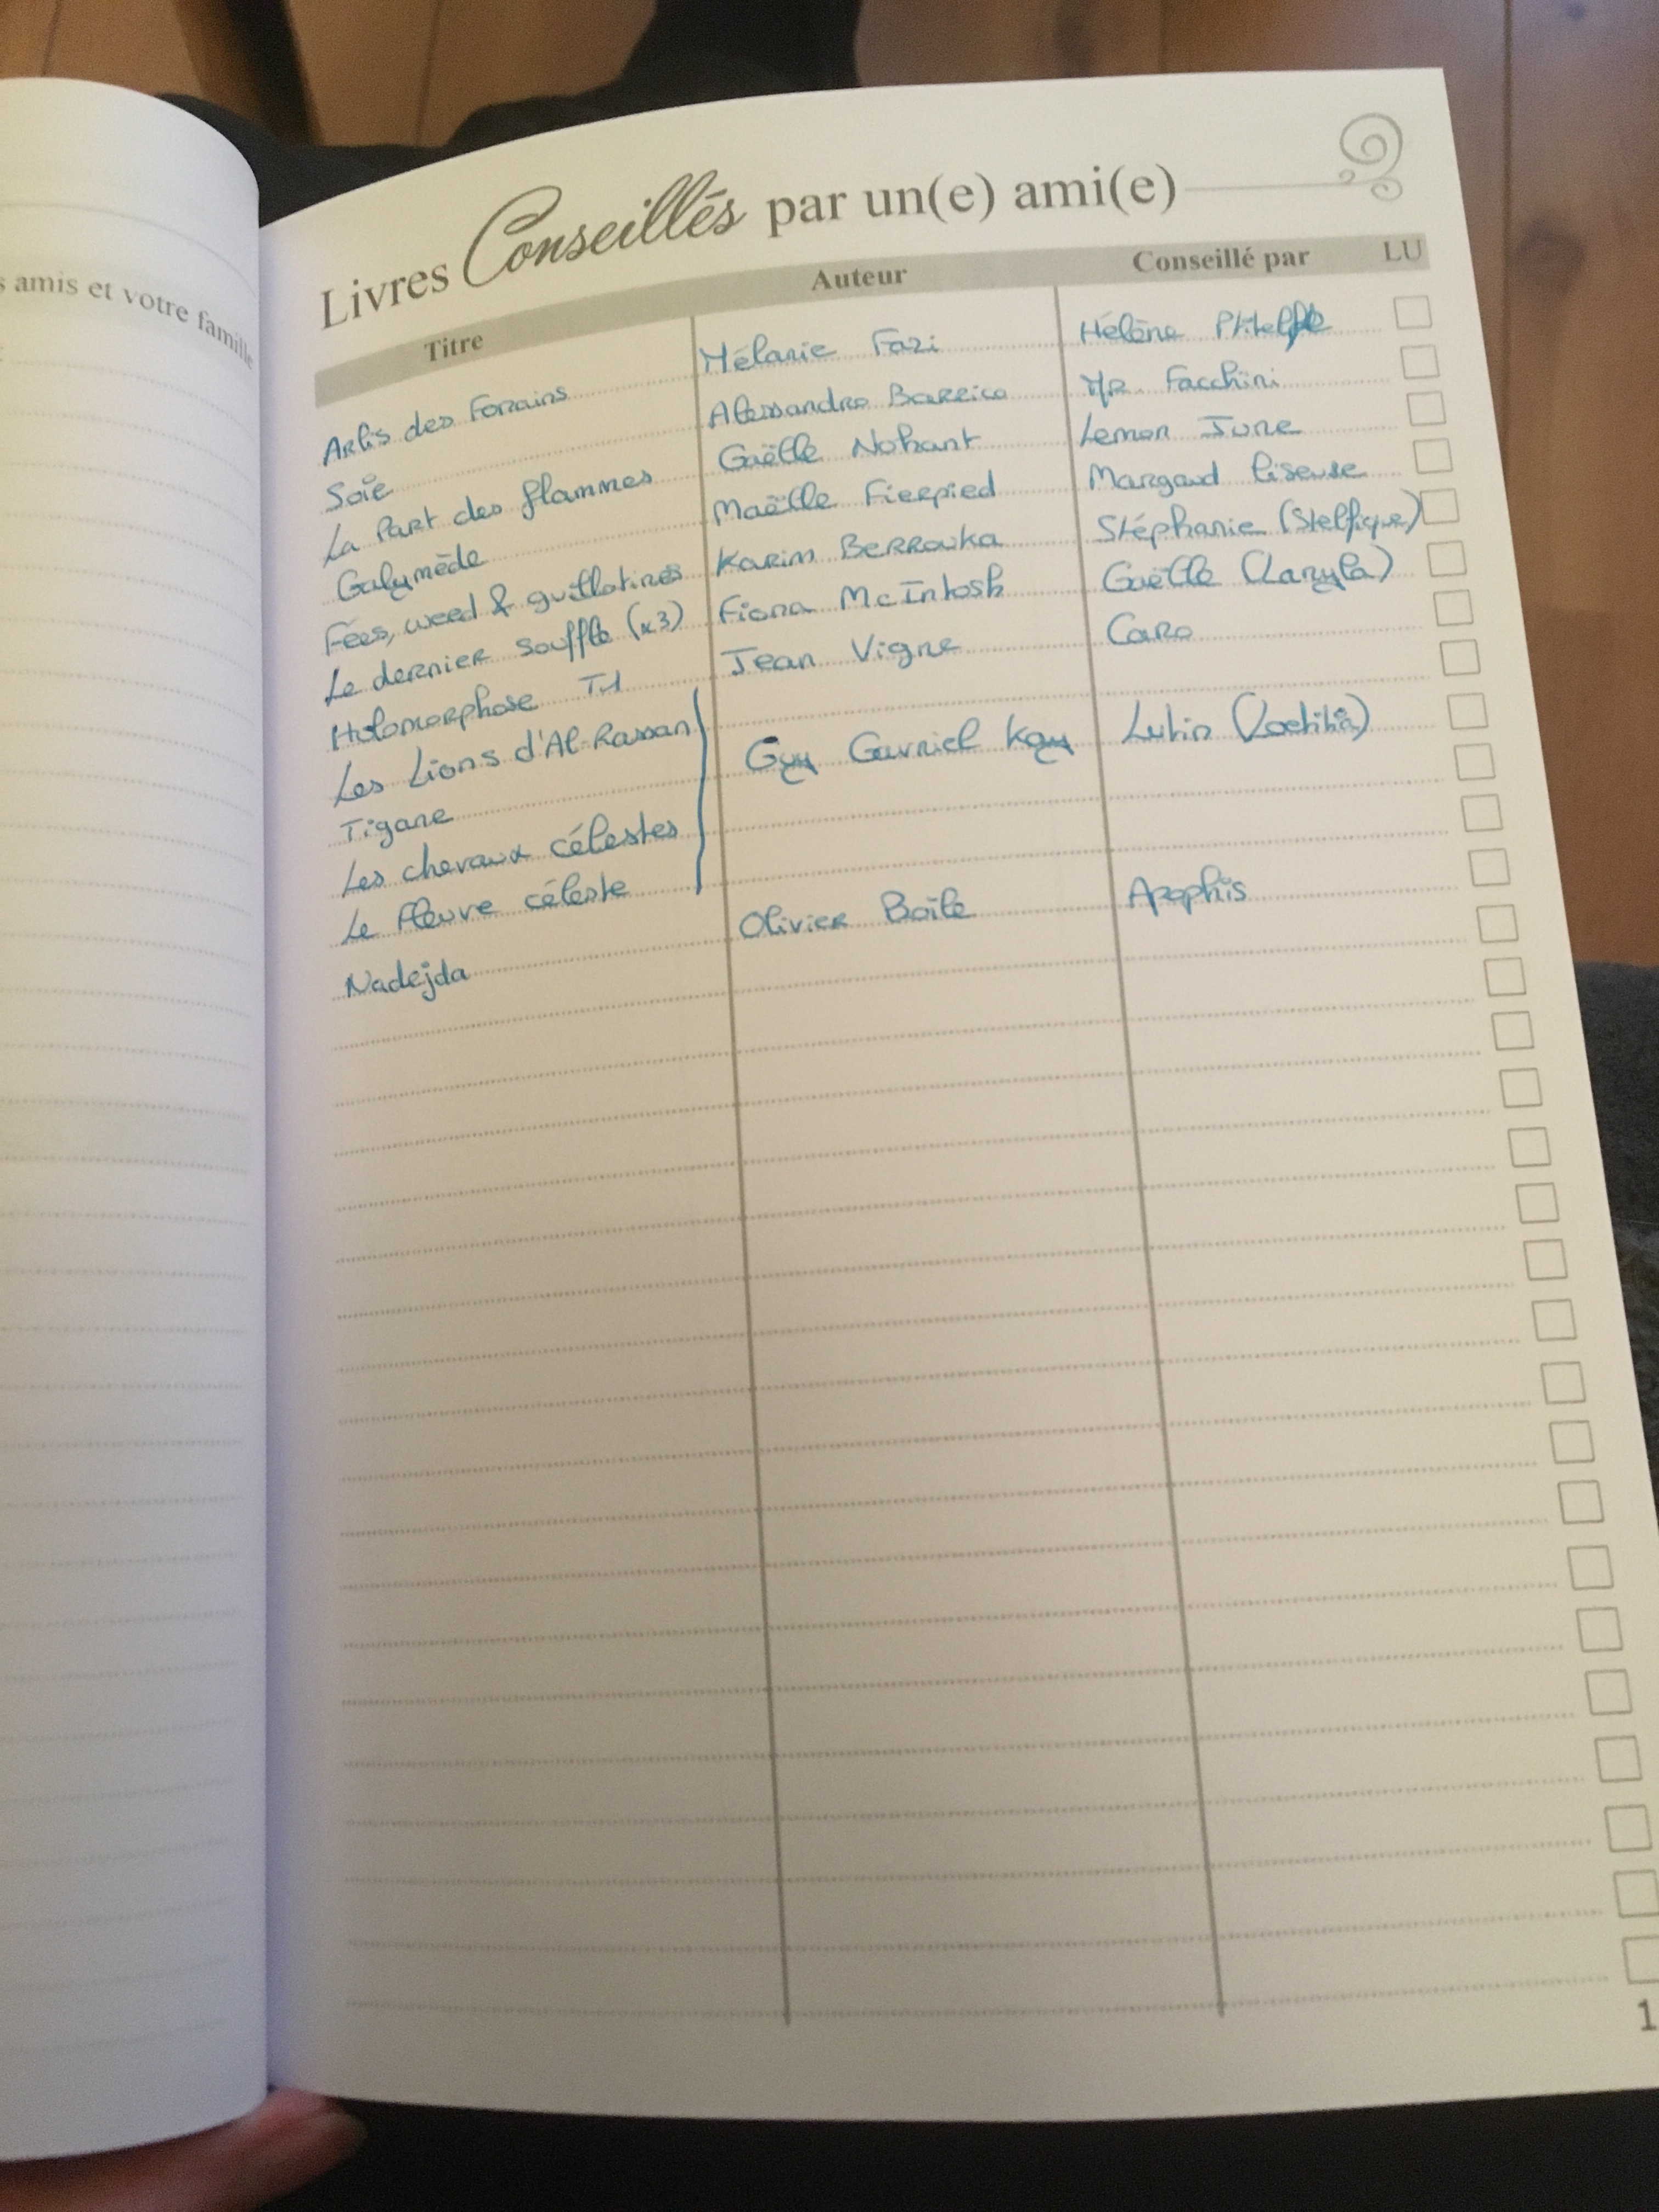 s amis et votre famille
Livres Conseillés par un(e) ami(e)
Titre Auteur Conseillé par LU
Arlis des Forains Mélanie Fazi Hélène
Soie Alessandro Barrico Mr. Facchini
La Part des flammes Gaëlle Nohant Lemon June
Galymède Maëlle Fierpied Margaud liseuse
Fées, weed & guillotines Karim Berrouka Stéphanie (Stelfique)
Le dernier souffle (x3) Fiona McIntosh Gaëlle (Laryla)
Holomorphose T1 Jean Vigne Caro
Les Lions d'Al-Rassan
Tigane Guy Gavriel Kay Lutin (Laetitia)
Les chevaux célestes
Le fleuve céleste
Nadejda Olivier Boile Apophis
1